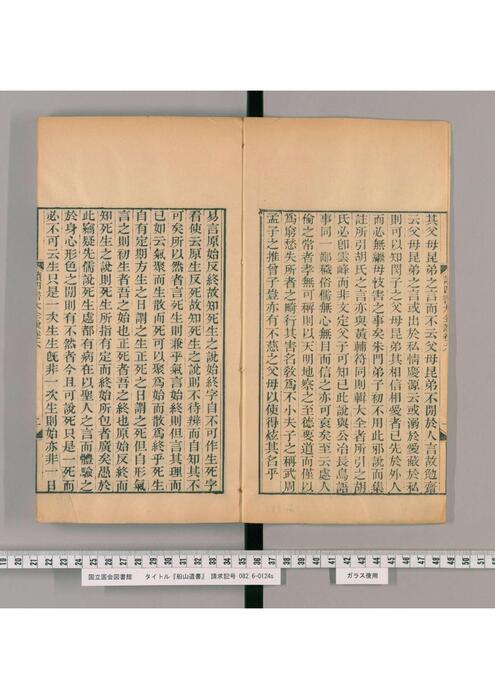 其父母昆弟之言而不云父母昆弟不閒於人言故勉齋
云父母昆弟之言或出於私情慶源云或溺於愛蔽於私
則可以知閔子之父母昆弟其相信相愛者已先於外人
而必無繼母忮害之事矣朱門弟子初不用此邪說而集
註所引胡氏之言亦與黃輔符同則輯大全者所引之胡
氏必卽雲峰而非文定父子可知已此說與公冶長鳥語
事同一鄙穢俗儒無心無目而信之亦可哀矣至云處人
倫之常者孝無可稱則以天明地察之至德要道而僅以
爲窮愁失所者之畸行其害名敎爲不小夫子之稱武周
孟子之推曾子豈亦有不慈之父母以使得炫其名乎
易言原始反終故知死生之說始終字自不可作生死字
看使云原生反死故知死生之說則不待辨而自知其不
可矣所以然者言死生則兼乎氣言始終則但言其理而
已如云氣聚而生散而死可以聚爲始而散爲終乎死生
自有定期方生之日謂之生正死之日謂之死但自形氣
言之則初生者吾之始也正死者吾之終也原始反終而
知死生之說則死生所指有定而終始所包者廣矣愚於
此竊疑先儒說死生處都有病在以聖人之言而體驗之
於身心形色之閒則有不然者今且可說死只是一死而
必不可云生只是一次生生旣非一次生則始亦非一日
讀四書大全說卷六
船山遺書
国立国会図書館 タイトル『船山遺書』 請求記号 082.6-0124s
ガラス使用
19 20 21 22 23 24 25 26 27 28 29 30 31 32 33 34 35 36 37 38 39 40 41 42 43 44 45 46 47 48 49 50 51